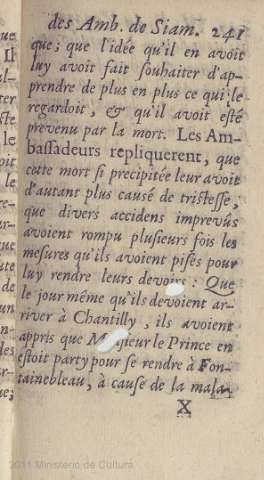 des Amb. de Siam. 241
que; que l'idée qu'il en avoit
luy avoit fait souhaiter d'ap-
prendre de plus en plus ce qui le
regardoit, & qu'il avoit esté
prevenu par la mort. Les Am-
bassadeurs repliquerent, que
cette mort si precipitée leur avoit
d'autant plus causé de tristesse,
que divers accidens imprevûs
avoient rompu plusieurs fois les
mesures qu'ils avoient prises pour
luy rendre leurs devoirs. Que
le jour même qu'ils devoient ar-
river à Chantilly, ils avoient
appris que Monsieur le Prince en
estoit party pour se rendre à Fon-
tainebleau, à cause de la mala-
X
2011 Ministerio de Cultura